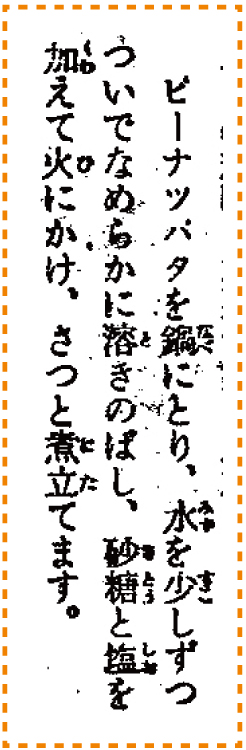 ピーナツバタを鍋にとり、水を少しずつ
ついでなめらかに溶きのばし、砂糖と塩を
加えて火にかけ、さつと煮立てます。